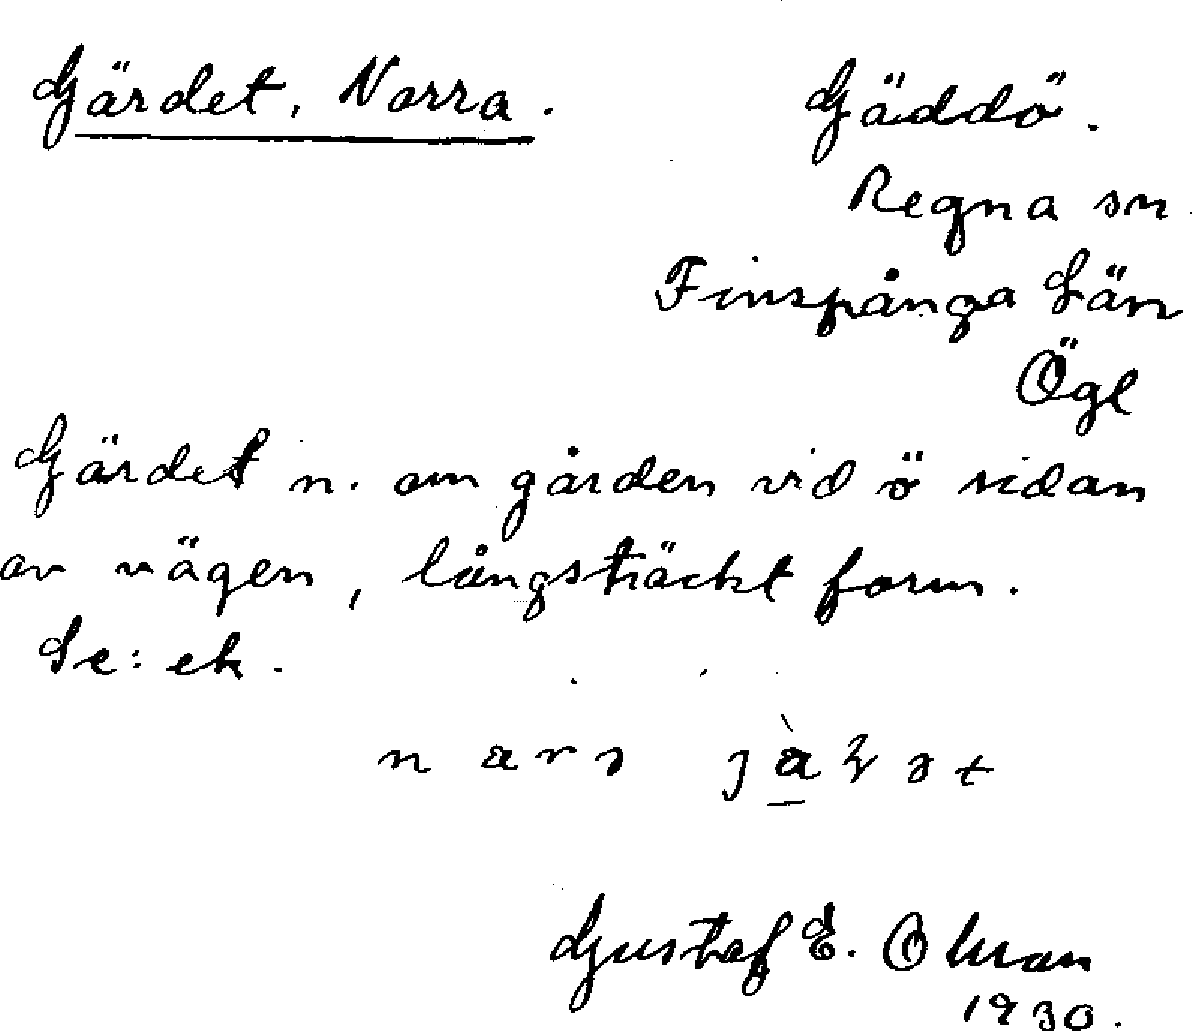 Gärdet, Norra.
Gäddö.
Regna sn
Finspånga Län
Ögl
Gärdet n. om gården vid ö sidan
av vägen, långsträckt form.
Se: ek.
Gustaf E.
1930.